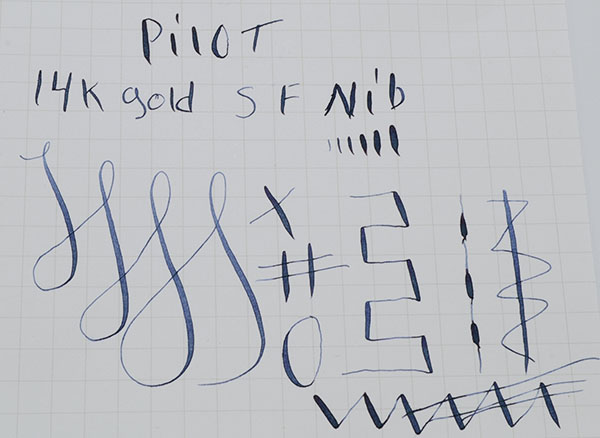 PilOT
14K gold S F Nib